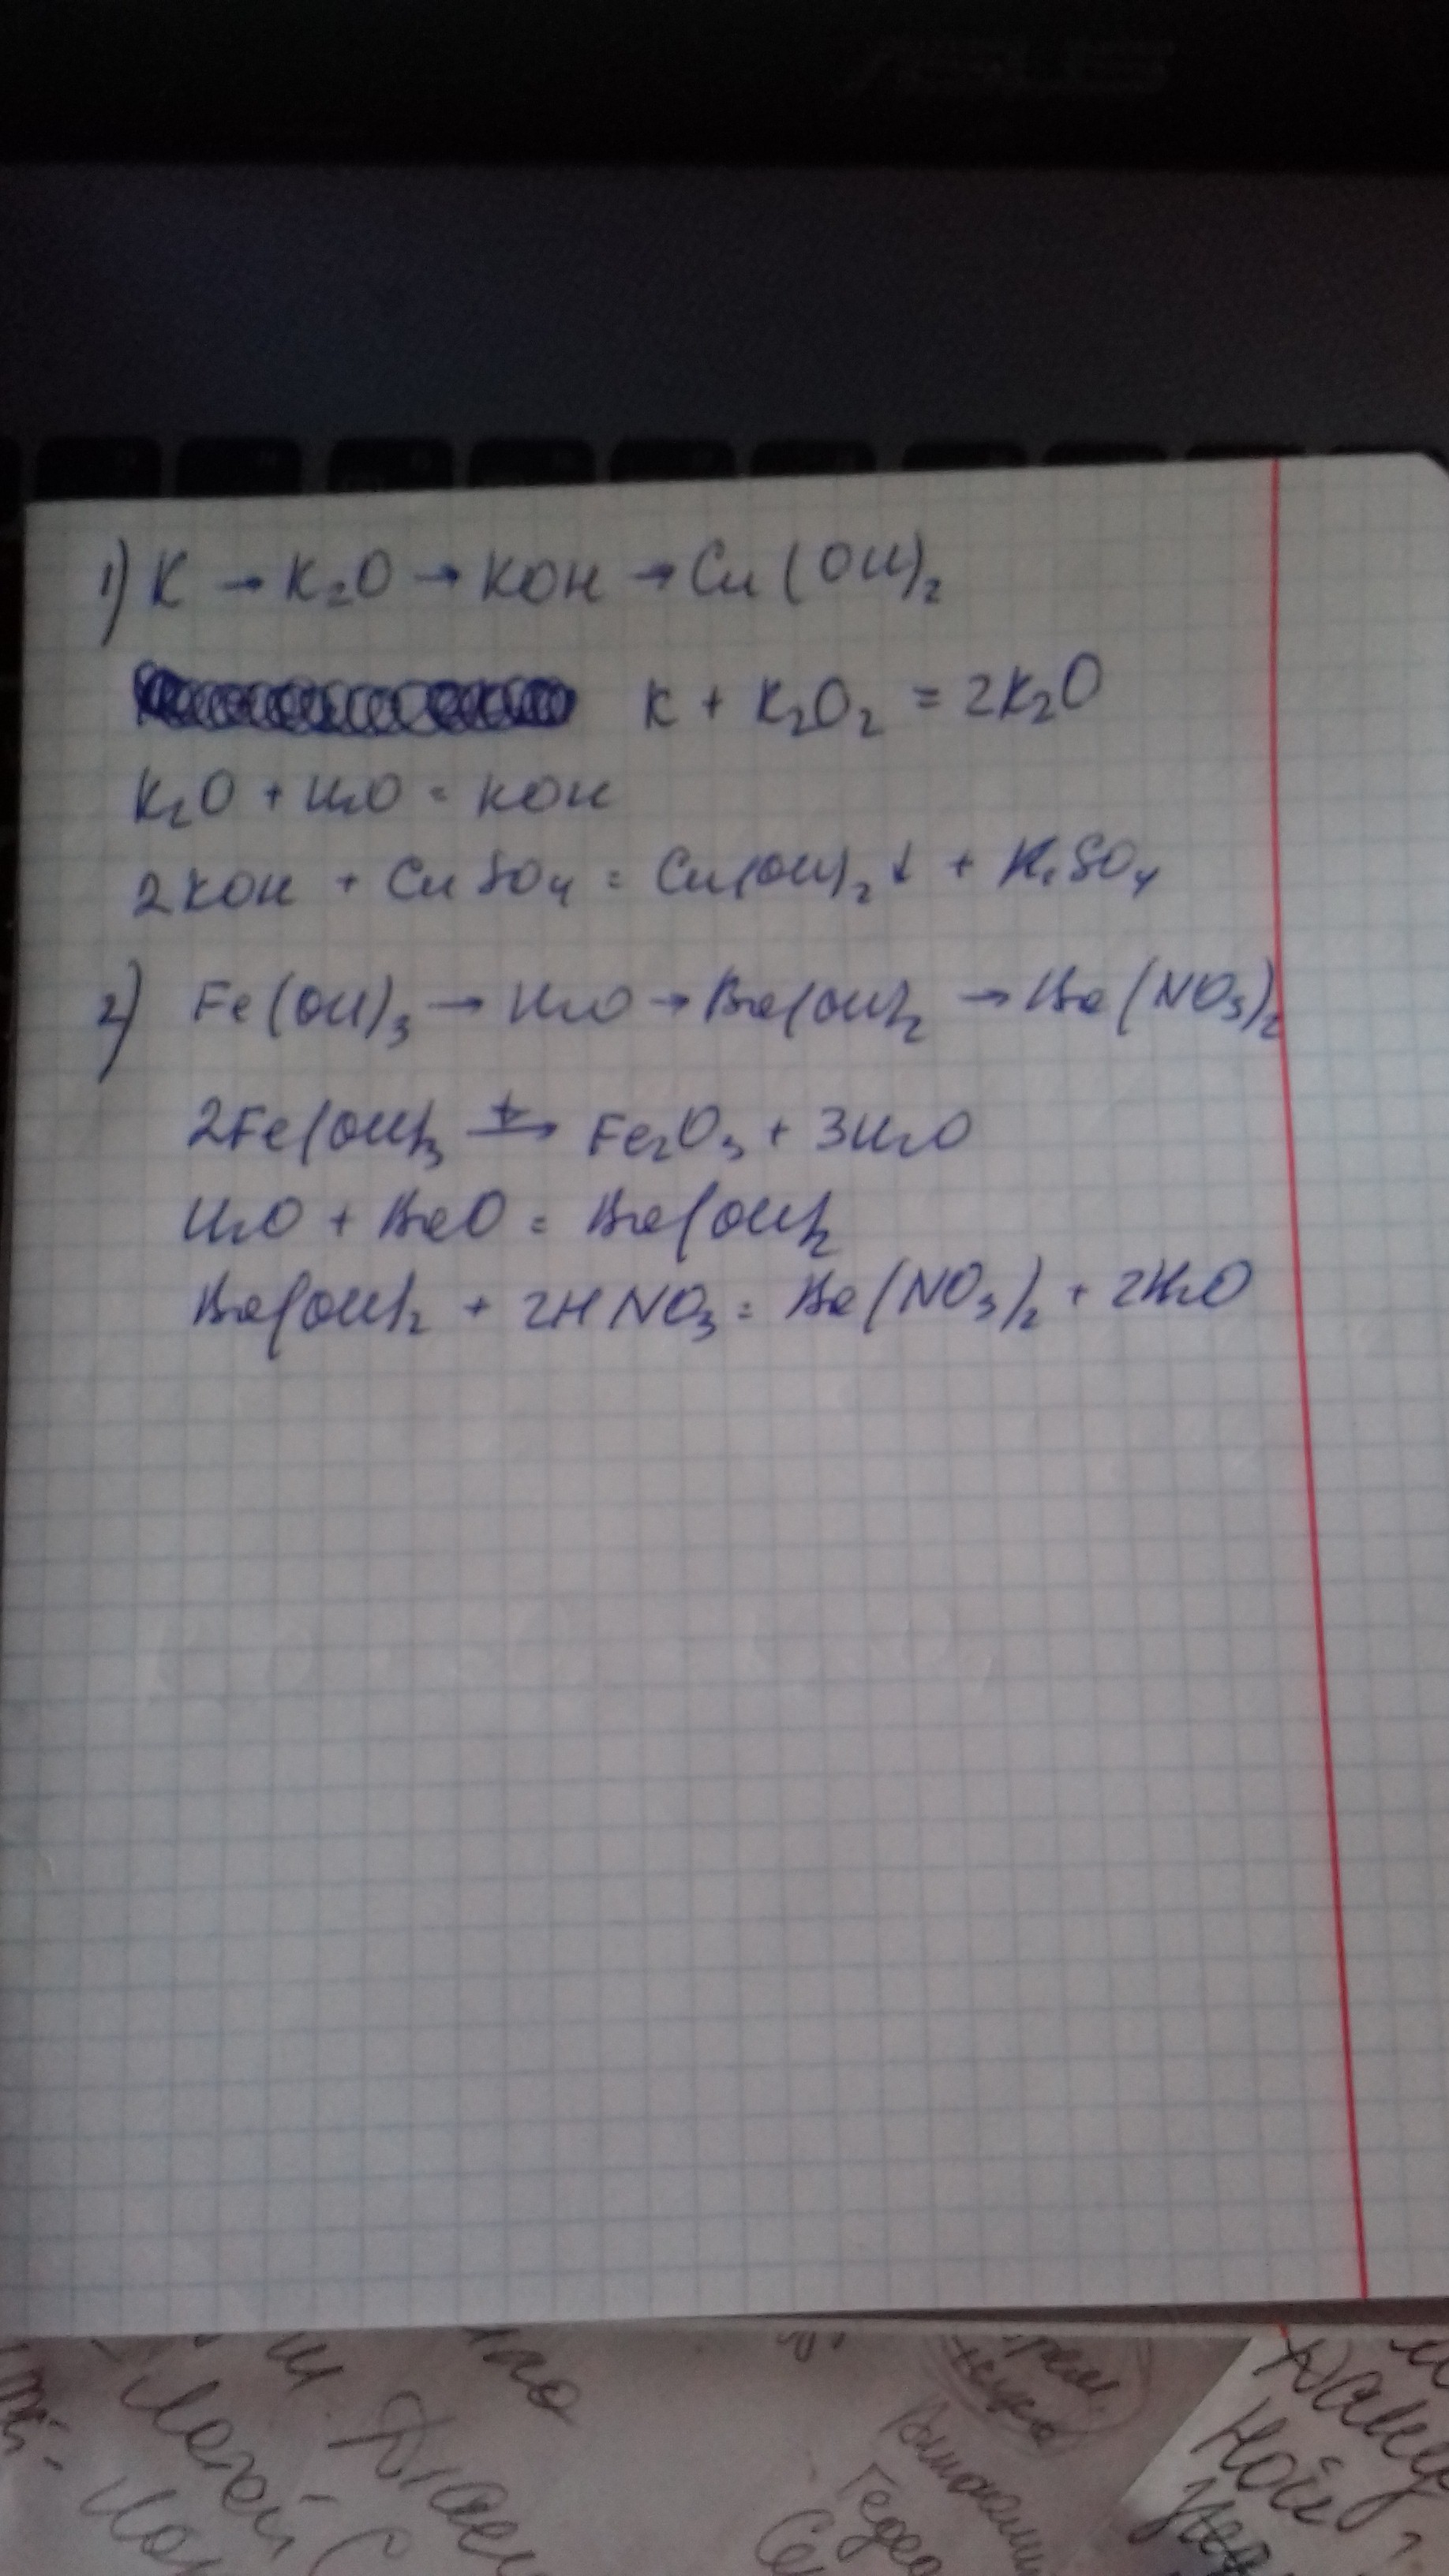 ASUS
1) K → K₂O → KOH → Cu(OH)₂
K + K₂O₂ = 2K₂O
K₂O + H₂O = KOH
2KOH + CuSO₄ = Cu(OH)₂↓ + K₂SO₄
2) Fe(OH)₃ → H₂O → Ba(OH)₂ → Ba(NO₃)₂
2Fe(OH)₃ t→ Fe₂O₃ + 3H₂O
H₂O + BaO = Ba(OH)₂
Ba(OH)₂ + 2HNO₃ = Ba(NO₃)₂ + 2H₂O